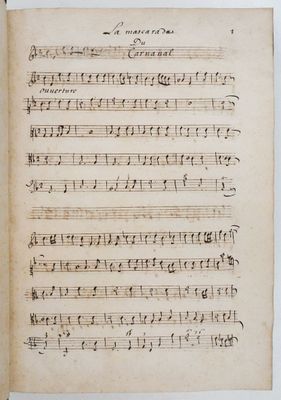 La mascarade 1
Du
Carnaual
Ouuerture